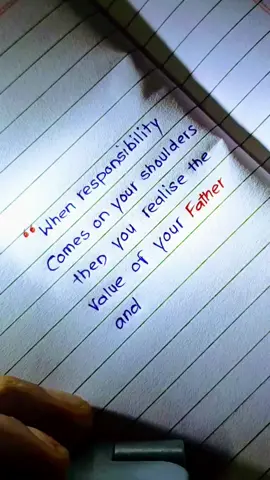 “When responsibility
Comes on your shoulders
then you realise the
value of your Father
and